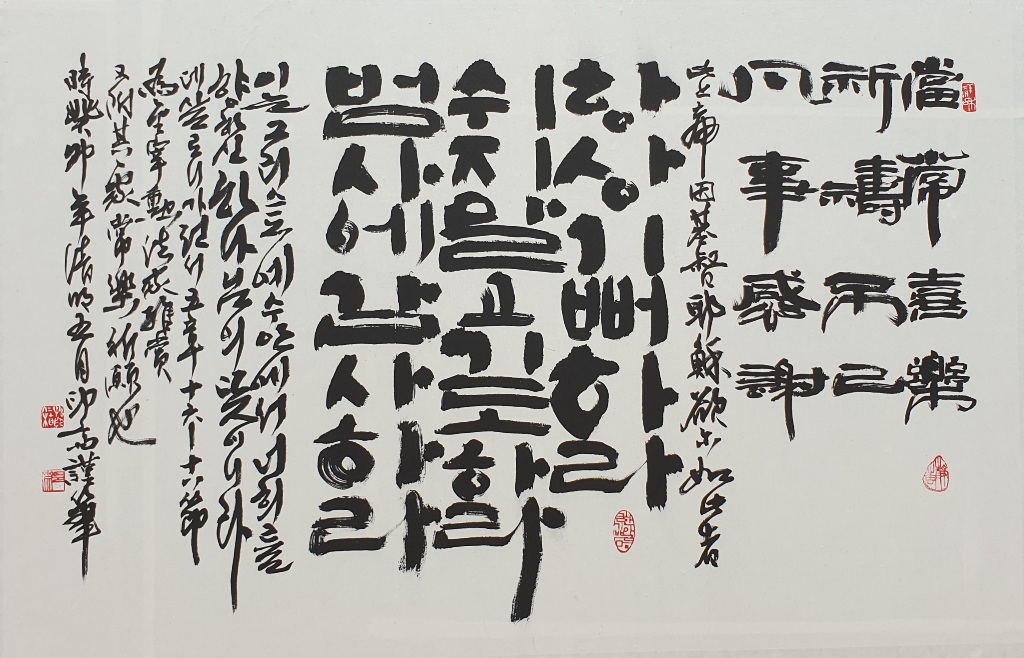 當常喜樂
祈禱不已
凡事感謝
此上帝因基督耶穌欲尒如此者
항상기뻐하라
쉬지말고기도하라
범사에감사하라
이는그리스도예수안에서너희를
향하신하나님의뜻이니라
데살로니가전서五章十六十八節
為宰勳法家雅賞
又附其家常樂祈願也
時癸卯年淸明五月謹筆